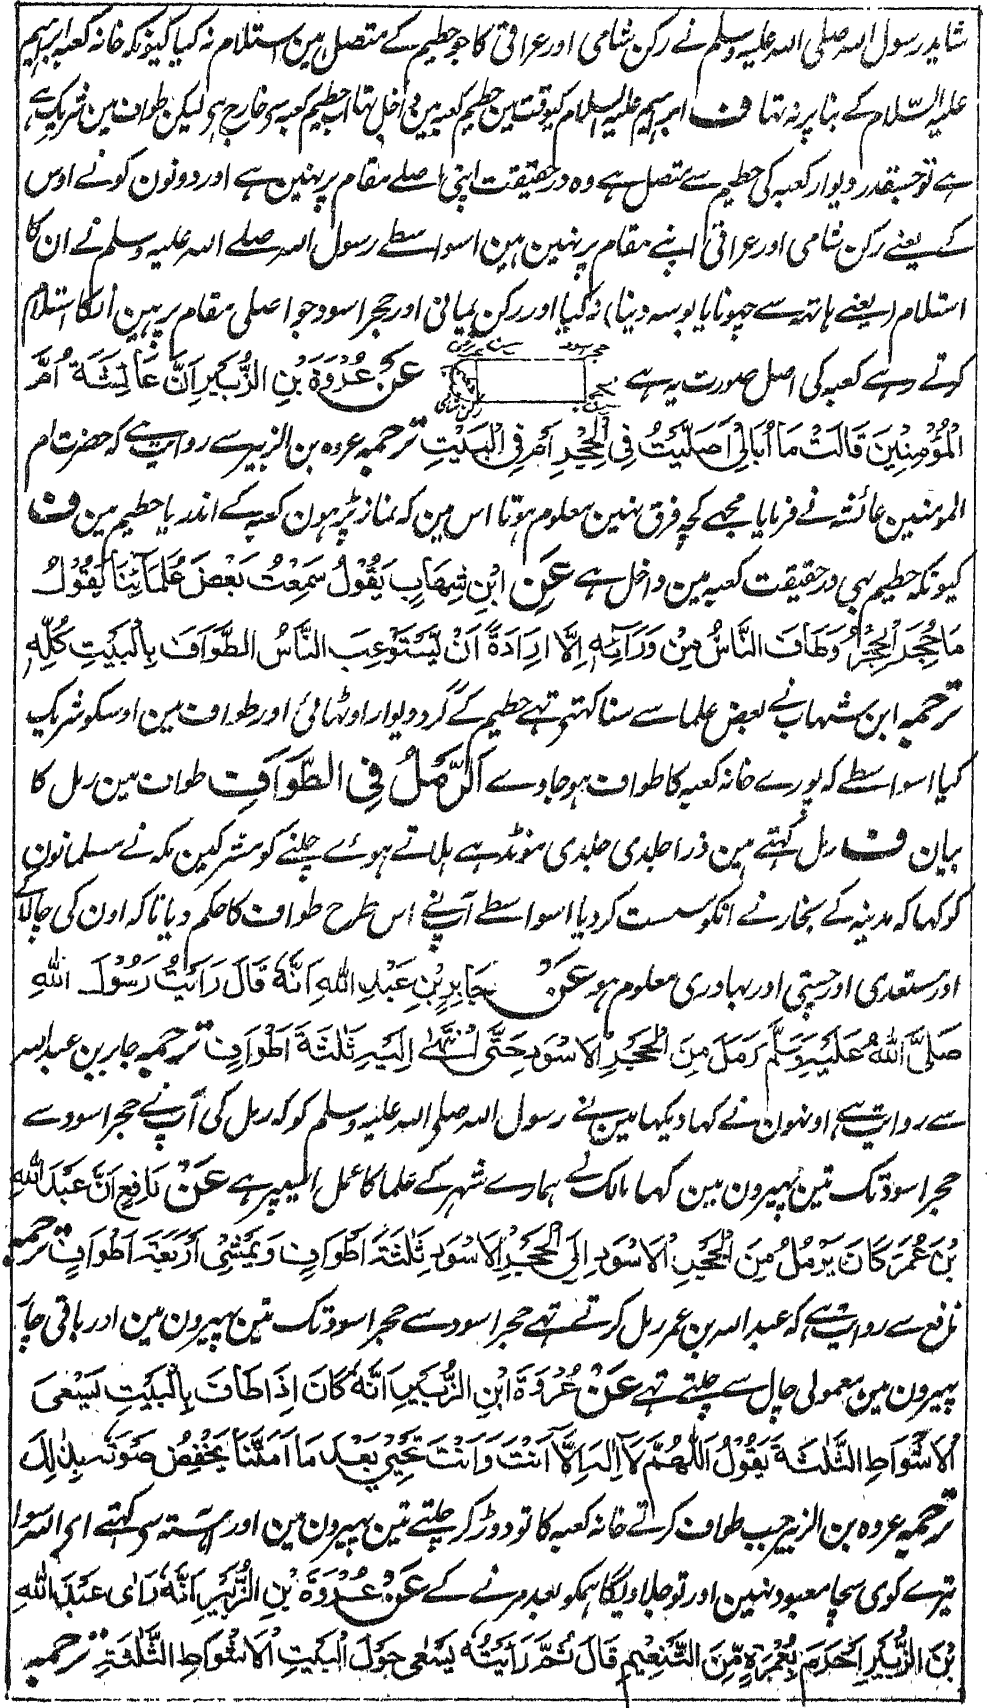 شاید رسول اللہ صلی اللہ علیہ وسلم نے رکن شامی اور عراقی کا جو حطیم کے متصل ہین استلام نہ کیا کیونکہ خانہ کعبہ ابراہیم
علیہ السلام کے بنا پر نہ تہا ف ابراہیم علیہ السلام کیوقت مین حطیم کعبہ مین داخل تہا اب حطیم کعبہ سی خارج ہی لیکن طواف مین شریک ہے
ہے تو جسقدر دیوار کعبہ کی حطیم سے متصل ہے وہ در حقیقت اپنی اصلے مقام پر نہین ہے اور دونون کونے اوس
کے یعنے رکن شامی اور عراقی اپنے مقام پر نہین ہین اسواسطے رسول اللہ صلے اللہ علیہ وسلم نے ان کا
استلام (یعنے ہاتہ سے چہونا یا بوسہ دینا) نہ کیا اور رکن یمانی اور حجر اسود جو اصلی مقام پر ہین انکا استلام
کرتے رہے کعبہ کی اصل صورت یہ ہے حجر اسود عَنْ عُرْوَةَ بْنِ الزُّبَيْرِ اَنَّ عَائِشَةَ اُمَّ
الْمُؤْمِنِيْنَ قَالَتْ مَا اُبَالِيْ اَصَلَّيْتُ فِي الْحِجْرِ اَمْ فِي الْبَيْتِ ترجمہ عروہ بن الزبیر سے روایت ہے کہ حضرت ام
المومنین عائشہ نے فرمایا مجہے کچہ فرق نہین معلوم ہوتا اس مین کہ نماز پڑہون کعبہ کے اندر یا حطیم مین ف
کیونکہ حطیم بہی در حقیقت کعبہ مین داخل ہے عَنِ ابْنِ شِهَابٍ يَقُوْلُ سَمِعْتُ بَعْضَ عُلَمَائِنَا يَقُوْلُ
مَا حُجِرَ الْحِجْرُ وَطَافَ النَّاسُ مِنْ وَرَائِهِ اِلَّا اِرَادَةَ اَنْ يَّسْتَوْعِبَ النَّاسُ الطَّوَافَ بِالْبَيْتِ كُلِّهِ
ترجمہ ابن شہاب نے بعض علما سے سنا کہتے تہے حطیم کے گرد دیوار اوٹہائی اور طواف مین اوسکو شریک
کیا اسواسطے کہ پورے خانہ کعبہ کا طواف ہو جاوے اَلرَّمَلُ فِي الطَّوَافِ طواف مین رمل کا
بیان ف رمل کہتے ہین ذرا جلدی جلدی مونڈہے ہلاتے ہوئے چلنے کو مشرکین مکہ نے مسلمانون
کو کہا کہ مدینہ کے بخار نے انکو سست کر دیا اسواسطے آپنے اس طرح طواف کا حکم دیا تاکہ اون کی چالاکے
اور مستعدی اور چستی اور بہادری معلوم ہو عَنْ جَابِرِ بْنِ عَبْدِ اللّٰهِ اَنَّهُ قَالَ رَاَيْتُ رَسُوْلَ اللّٰهِ
صَلَّى اللّٰهُ عَلَيْهِ وَسَلَّمَ رَمَلَ مِنَ الْحَجَرِ الْاَسْوَدِ حَتَّى انْتَهٰى اِلَيْهِ ثَلٰثَةَ اَطْوَافٍ ترجمہ جابر بن عبد اللہ
سے روایت ہے اونہون نے کہا دیکہا مین نے رسول اللہ صلی اللہ علیہ وسلم کو کہ رمل کی آپ نے حجر اسود سے
حجر اسود تک تین پہیرون مین کہا مالک نے ہمارے شہر کے علما کا عمل اسیپر ہے عَنْ نَافِعٍ اَنَّ عَبْدَ اللّٰهِ
بْنَ عُمَرَ كَانَ يَرْمُلُ مِنَ الْحَجَرِ الْاَسْوَدِ اِلَى الْحَجَرِ الْاَسْوَدِ ثَلٰثَةَ اَطْوَافٍ وَيَمْشِيْ اَرْبَعَةَ اَطْوَافٍ ترجمہ
نافع سے روایت ہے کہ عبد اللہ بن عمر رمل کرتے تہے حجر اسود سے حجر اسود تک تین پہیرون مین اور باقی چار
پہیرون مین معمولی چال سے چلتے تہے عَنْ عُرْوَةَ ابْنِ الزُّبَيْرِ اَنَّهُ كَانَ اِذَا طَافَ بِالْبَيْتِ يَسْعٰى
الْاَشْوَاطَ الثَّلٰثَةَ يَقُوْلُ اَللّٰهُمَّ لَا اِلٰهَ اِلَّا اَنْتَ وَاَنْتَ تُحْيِيْ بَعْدَ مَا اَمَتَّنَا يَخْفِضُ صَوْتَهُ بِذٰلِكَ
ترجمہ عروہ بن الزبیر جب طواف کرتے خانہ کعبہ کا تو دوڑ کر چلتے تین پہیرون مین اور آہستہ سی کہتے ای اللہ سوا
تیرے کوی سچا معبود نہین اور تو جلاویگا ہمکو بعد مرنے کے عَنْ عُرْوَةَ بْنِ الزُّبَيْرِ اَنَّهُ رَاٰى عَبْدَ اللّٰهِ
بْنَ الزُّبَيْرِ اَحْرَمَ بِعُمْرَةٍ مِّنَ التَّنْعِيْمِ قَالَ ثُمَّ رَاَيْتُهُ يَسْعٰى حَوْلَ الْبَيْتِ الْاَشْوَاطَ الثَّلٰثَةَ ترجمہ